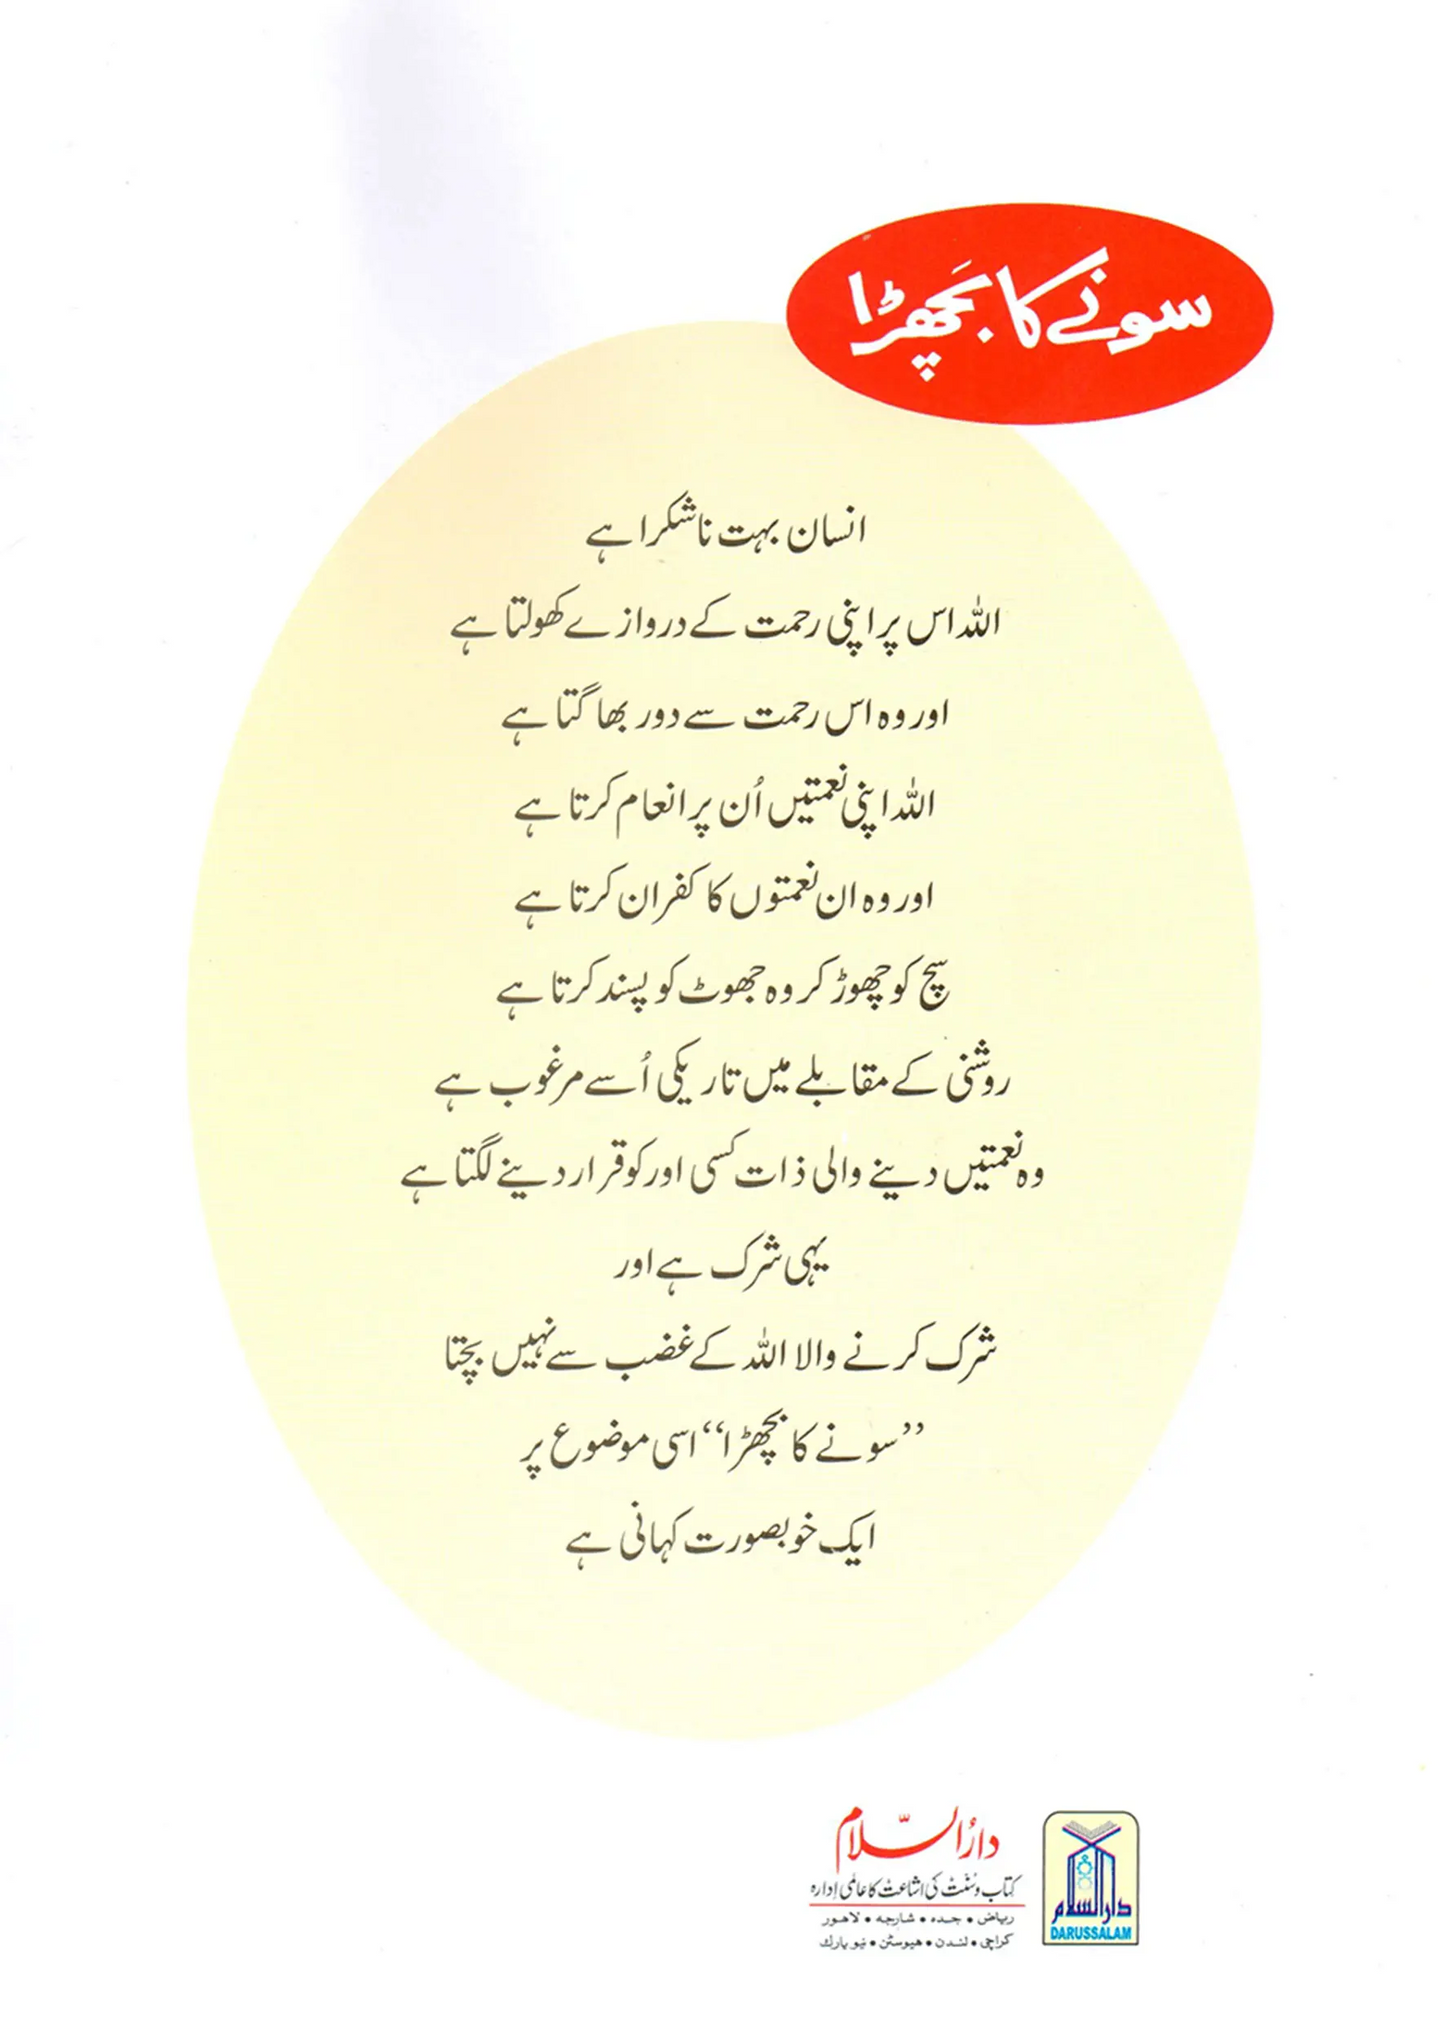 سونے کا بَچھڑا
انسان بہت ناشکرا ہے
اللہ اس پر اپنی رحمت کے دروازے کھولتا ہے
اور وہ اس رحمت سے دور بھاگتا ہے
اللہ اپنی نعمتیں اُن پر انعام کرتا ہے
اور وہ ان نعمتوں کا کفران کرتا ہے
سچ کو چھوڑ کر وہ جھوٹ کو پسند کرتا ہے
روشنی کے مقابلے میں تاریکی اُسے مرغوب ہے
وہ نعمتیں دینے والی ذات کسی اور کو قرار دینے لگتا ہے
یہی شرک ہے اور
شرک کرنے والا اللہ کے غضب سے نہیں بچتا
”سونے کا بچھڑا“ اسی موضوع پر
ایک خوبصورت کہانی ہے
دارُالسّلام
کتاب و سُنّت کی اشاعت کا عالمی اِدارہ
ریاض • جدہ • شارجہ • لاهور
کراچی • لندن • هیوسٹن • نیو یارك
دارالسلام
DARUSSALAM